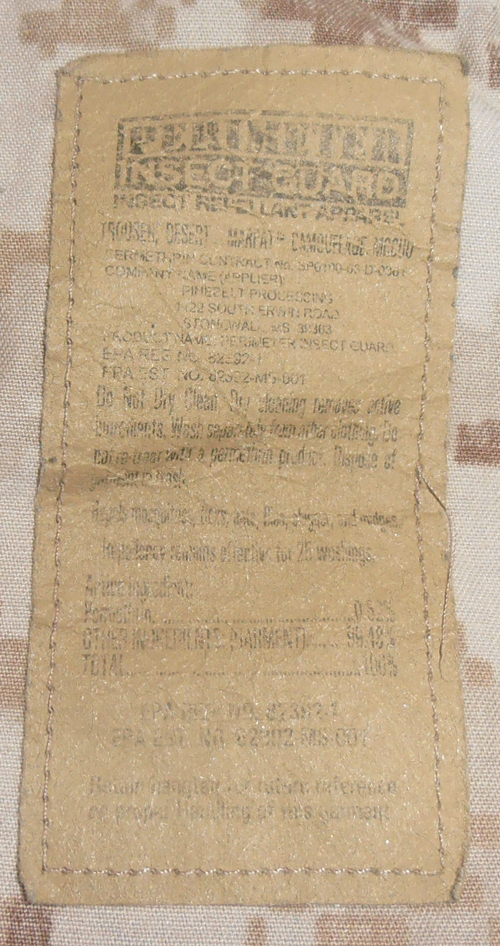 PERIMETER
INSECT GUARD
INSECT REPELLANT APPAREL
TROUSER, DESERT MARPAT™ CAMOUFLAGE, MCCUU
PERMETHRIN CONTRACT No. SP0100-03-D-0381
COMPANY NAME (APPLIER):
PINEBELT PROCESSING
1122 SOUTH ERWIN ROAD
STONEWALL, MS 39363
PRODUCT NAME: PERIMETER INSECT GUARD
EPA REG No. 82392-1
EPA EST. NO. 82392-MS-001
Do Not Dry Clean. Dry cleaning removes active
ingredients. Wash separately from other clothing. Do
not re-treat with a permethrin product. Dispose of
garment in trash.
Repels mosquitoes, ticks, ants, flies, chiggers, and midges.
Impedance remains effective for 25 washings.
Active Ingredient:
Permethrin...............................0.52%
OTHER INGREDIENTS (GARMENT)...... 99.48%
TOTAL...................................100%
EPA REG. NO. 82392-1
EPA EST. NO. 82392-MS-001
Retain hangtag for future reference
on proper Handling of this garment